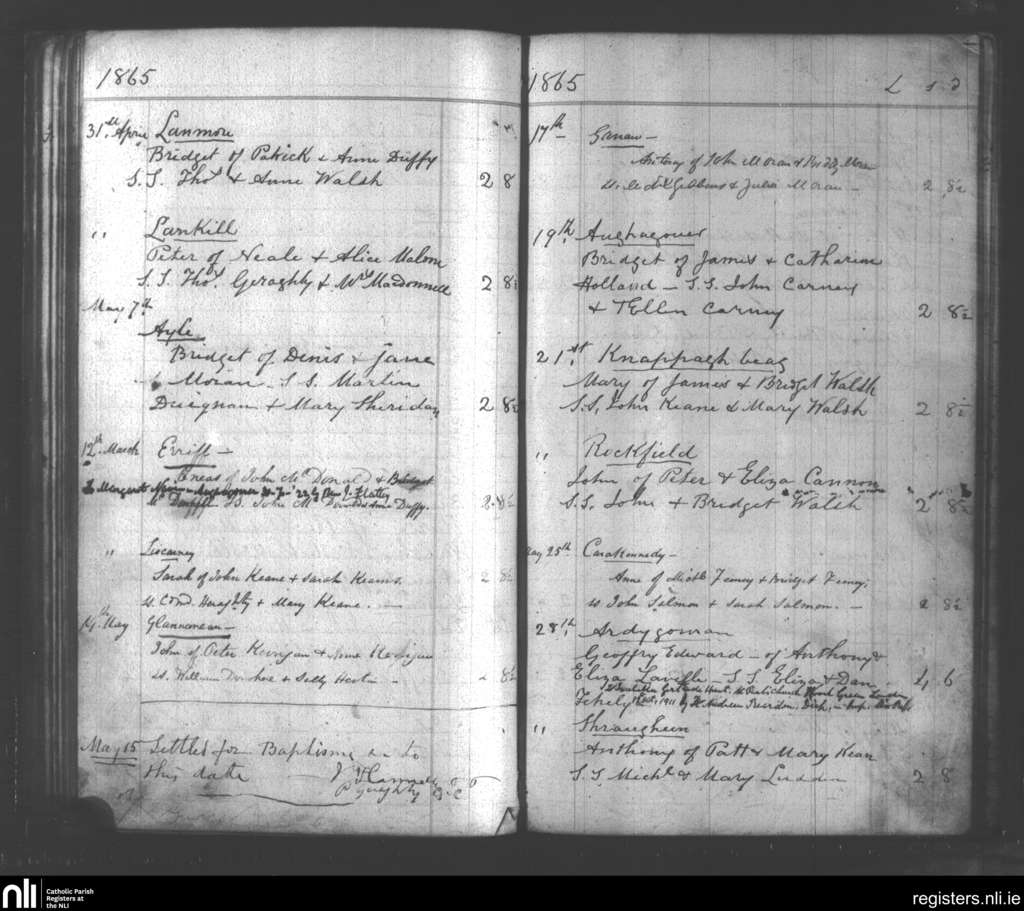 1865
31st April Lanmore
Bridget of Patrick & Anne Duffy
S.S. Thos & Anne Walsh 2 8
" Lankill
Peter of Neale & Alice Malone
S.S. Thos. Geraghty & Wm MacDonnell 2 8½
May 7th
Ayle
Bridget of Denis & Jane
Moran S.S. Martin
Duignan & Mary Sheridan 2 8½
12th March Erriff —
Eneas of John Mc Donald & Bridget
Margaret
Duffy S. John Mc Donald & Anne Duffy. 2 8½
" Liscarney
Sarah of John Keane & Sarah Keane. 2 8½
ss. Cond. Heraghty & Mary Keane. —
14th May Glannamean —
John of Peter Kerigan & Anne Kerigan
ss. William & Sally Hestin — 8½
May 15 Settled for Baptisms up to
this date
Geraghty C.C
1865 L s d
17th Gr—
Antony of John Moran & Moran
ss. Gibbons & Julia Moran — 2 8½
19th Aughagower
Bridget of James & Catharine
Holland — S.S. John Carney
& Ellen Carney 2 8½
21st Knappagh beag
Mary of James & Bridget Walsh
S.S. John Keane & Mary Walsh 2 8½
" Rockfield
John of Peter & Eliza Cannon
S.S. John & Bridget Walsh 2 8½
May 25th Carakennedy —
Anne of Michl Feeney & Bridget Feeney.
ss John Salmon & Sarah Salmon. — 2 8½
28th. Ardygowan
Geoffry Edward — of Anthony &
Eliza Lavelle — S.S. Eliza & Dan 4 6
Gertrude Hunt, Church Wood Green London
1911 by
" Shraugheen
Anthony of Patt & Mary Kean
S.S Michl & Mary Ludden 2 8
nli
Catholic Parish
Registers at
the NLI
registers.nli.ie